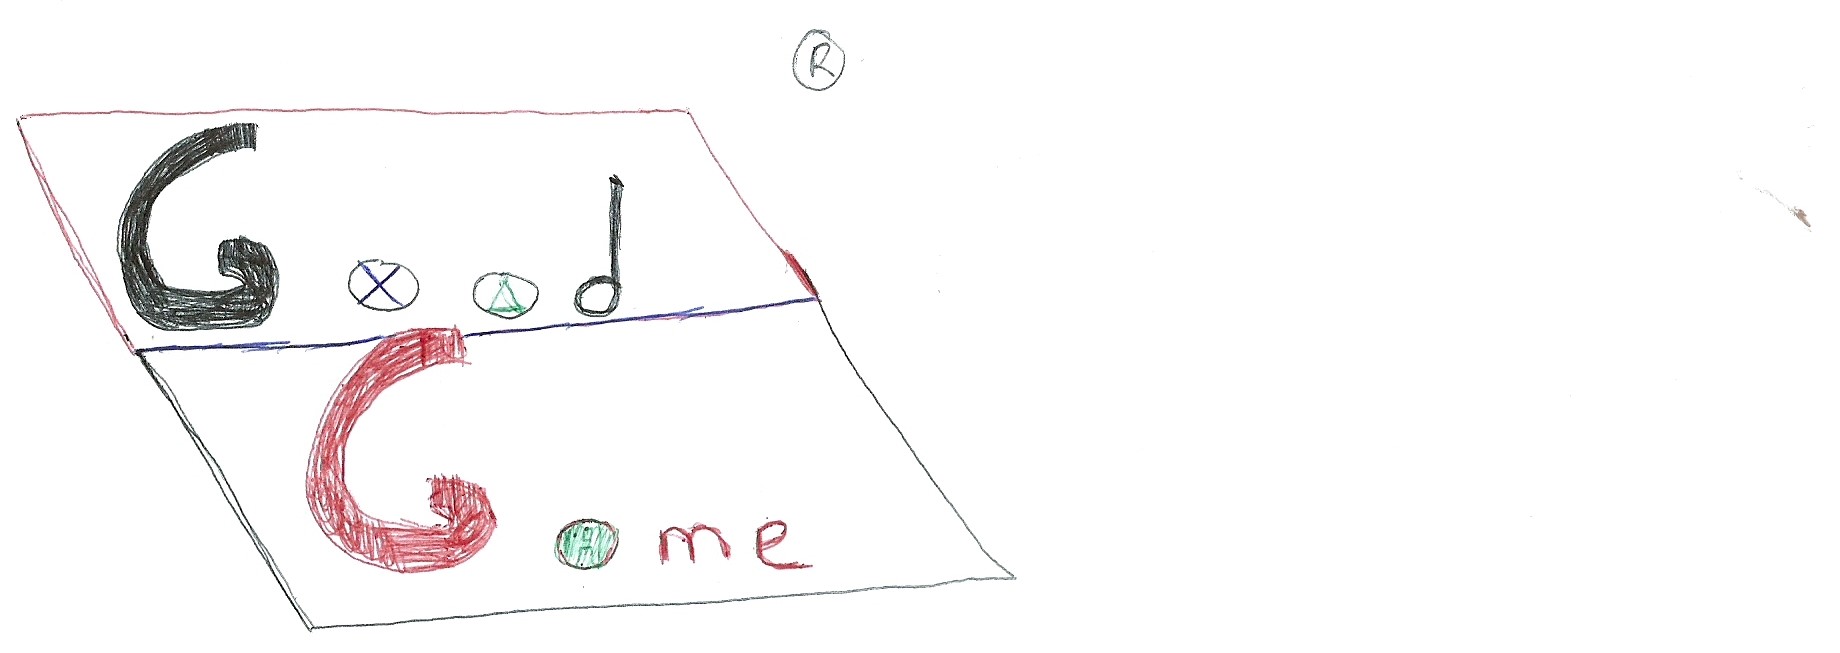 ®
Good
GAme